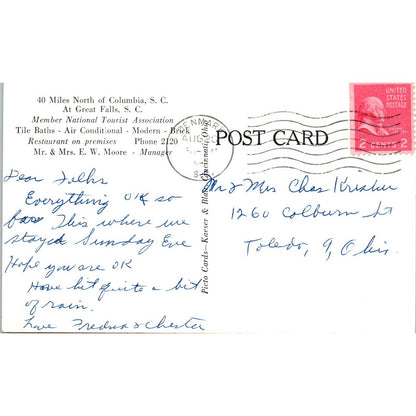 40 Miles North of Columbia, S. C.
At Great Falls, S. C.
Member National Tourist Association
Tile Baths - Air Conditional - Modern - Brick
Restaurant on premises Phone 2120
Mr. & Mrs. E. W. Moore - Manager
DENMARK
AUG
POST CARD
UNITED
STATES
POSTAGE
2 CENTS 2
Picto Cards - Kaeser & Blair, Cincinnati, Ohio
Dear Folks
Everything OK so
far This where we
stayed Sunday Eve
Hope you are OK
Have hit quite a bit
of rain.
Love Fredna & Chester
Mr & Mrs Chas
1260 Colburn St
Toledo, 9, Ohio.